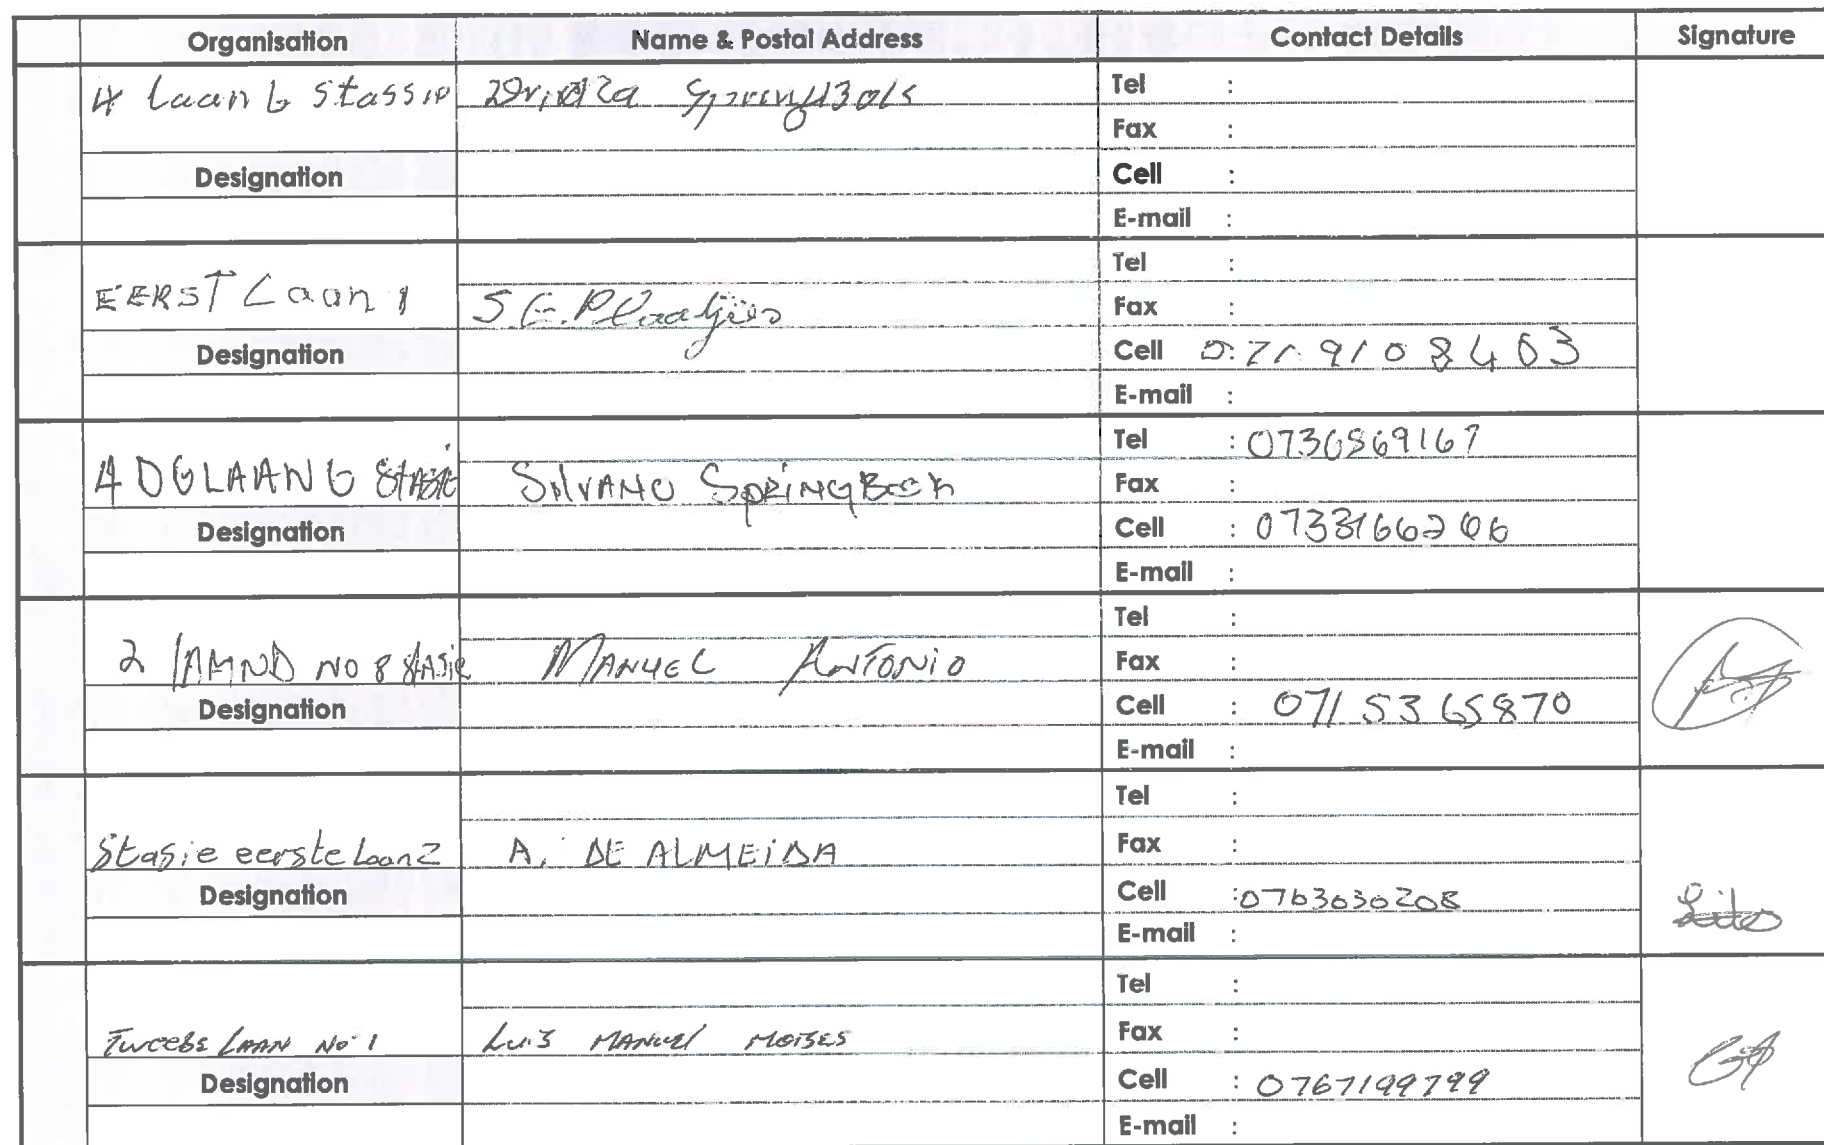 Organisation Name & Postal Address Contact Details Signature
4 Laan 6 Stassie
Tel :
Fax :
Designation Cell :
E-mail :
EERST Laan 1 S.E. Plaatjies
Tel :
Fax :
Designation Cell : 0719108463
E-mail :
4 DGLAAN 6 STASIE SILVANO SpRINGBOCK
Tel : 0736869167
Fax :
Designation Cell : 0733166206
E-mail :
2 NO 8 STASIE MANUEL ANTONIO
Tel :
Fax :
Designation Cell : 0715365870
E-mail :
Stasie eerste Laan 2 A. DE ALMEIDA
Tel :
Fax :
Designation Cell : 0763030208 Lito
E-mail :
TWEEDE LAAN No 1 LUIS MANUEL MOISES
Tel :
Fax :
Designation Cell : 0767199799
E-mail :